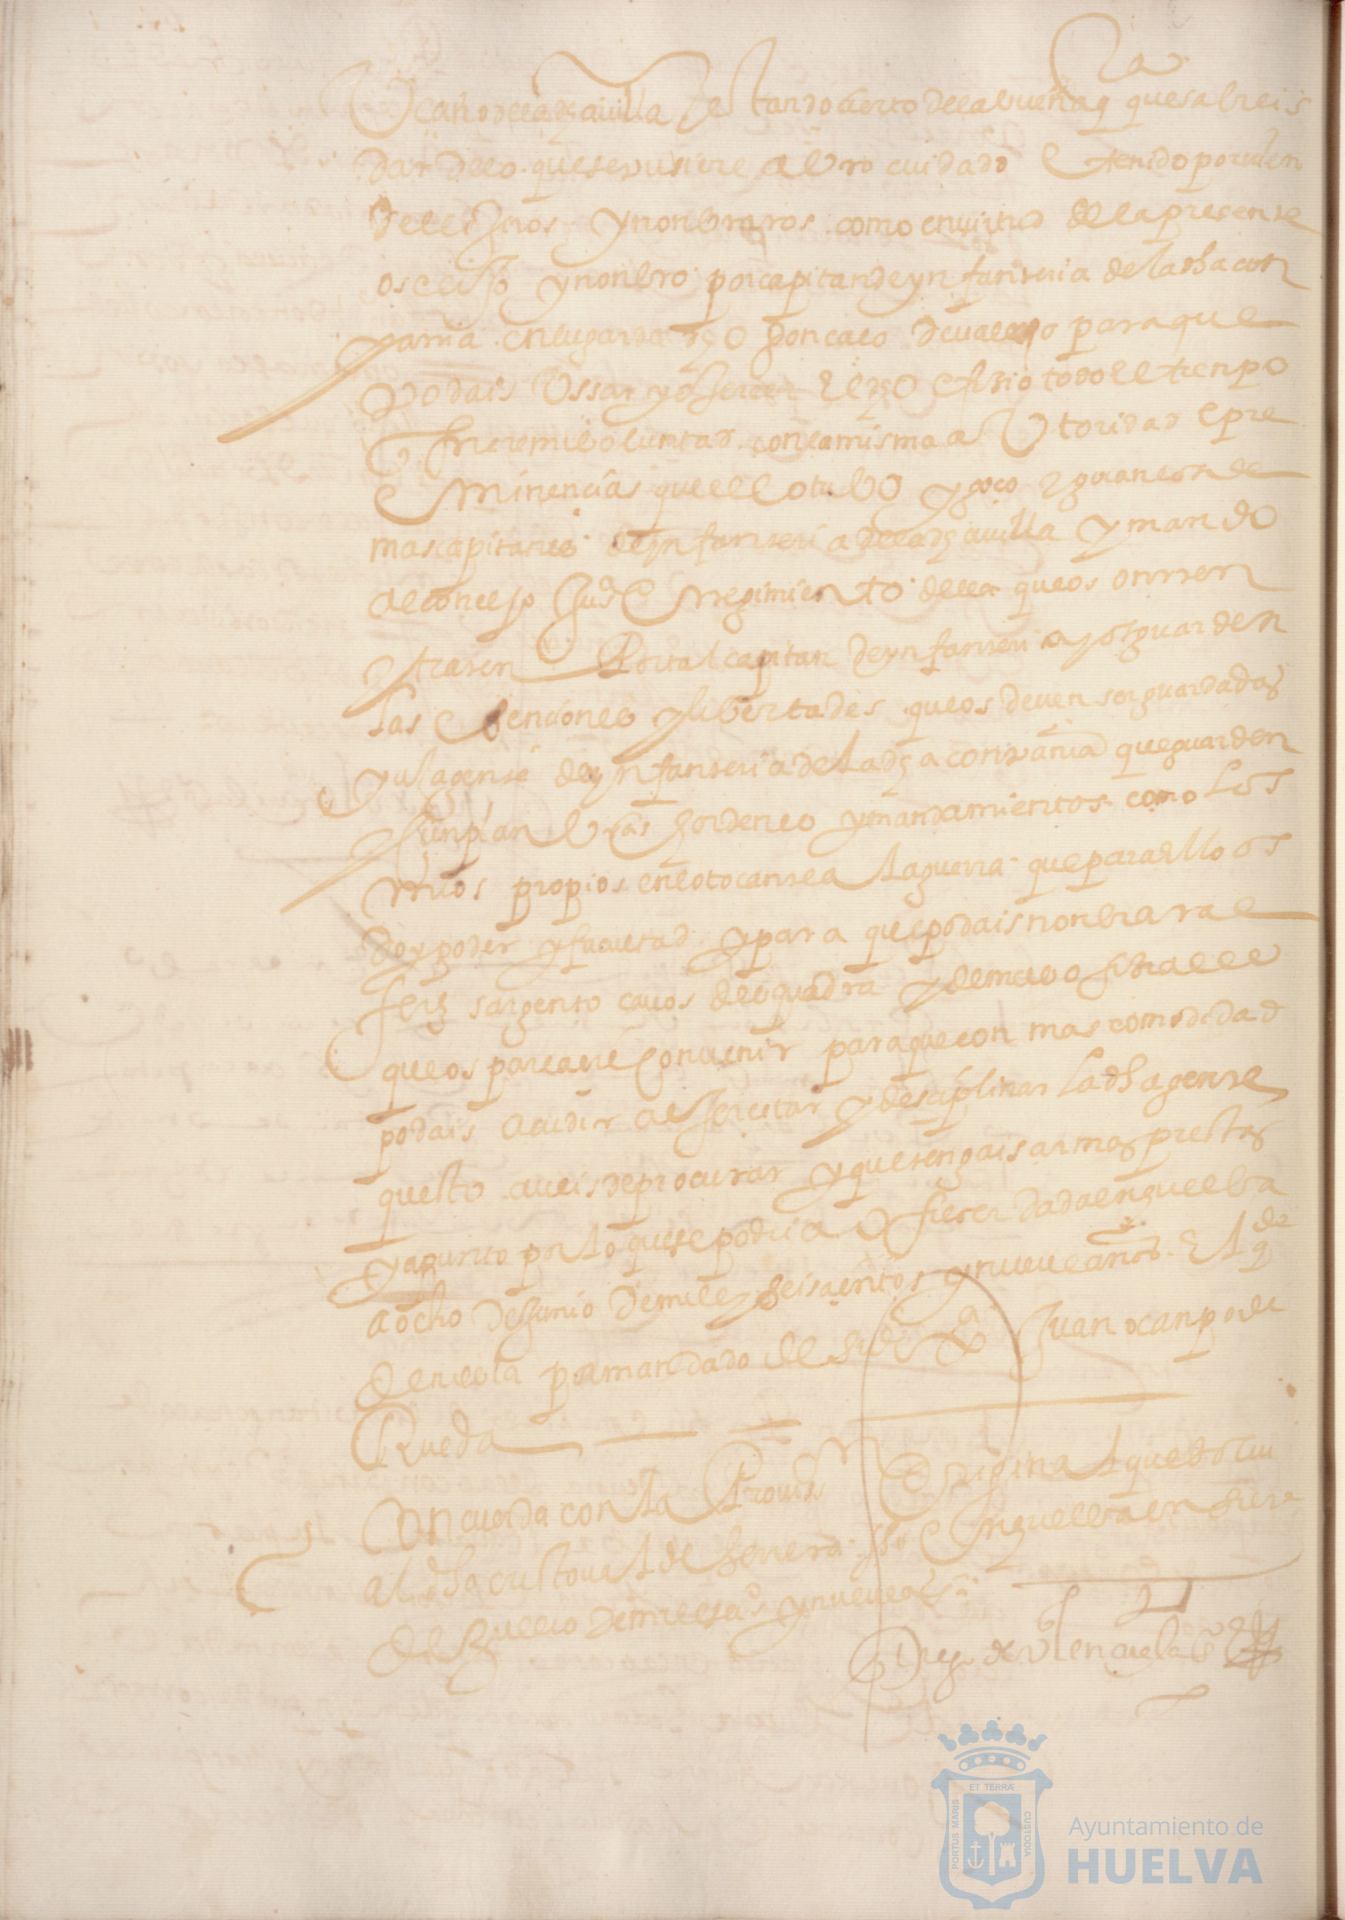 V.º cano de la dha villa y estando cierto de la buena q.ta que sabreis
dar de lo que se pusiere a vro cuidado e tenido por vien
de eli y nonbraros como en virtud de la presente
os elijo y nonbro por capitan de ynfanteria de la dha con
pania en lugar del dho gonçalo de para que
podais ussar y exercer el dho ofisio todo el tienpo
q fuere mi boluntad con la misma autoridad e pre
eminencias que el lo tubo y goço y goçan los de
mas capitanes de ynfanteria de la dha villa y mando
al concejo Jusª e rregimiento della que os onrren
y traten Por tal capitan de ynfanteria y os guarden
las esenciones y libertades que os deven ser guardadas
y a la gente de ynfanteria de la dha conpania que guarden
y cunplan vras hordenes y mandamientos como los
mios propios en lo tocante a la guerra que para ello os
doy poder y facultad y para que podais nonbrar al
ferz sargento cavos de esquadra y demas ofisiales
que os pareciere convenir para que con mas comodidad
podais acudir a exercitar y desciplinar la dha gente
questo aveis de procurar y que tengais armas prestas
y a punto por lo que se podria ofrecer dada en guelba
a ocho de Junio de mill y seiscientos y nueve años. El d
por mandado de su Exª Juan ocanpo de
Rueda
Concuerda con la Provis orijinal que bolui
al dho cristoval de en guelba en
de Jullio de mill e sºs y nueve aºs
Diego de Valençuela
ET TERRÆ
PORTUS MARIS
CUSTODIA
Ayuntamiento de
HUELVA